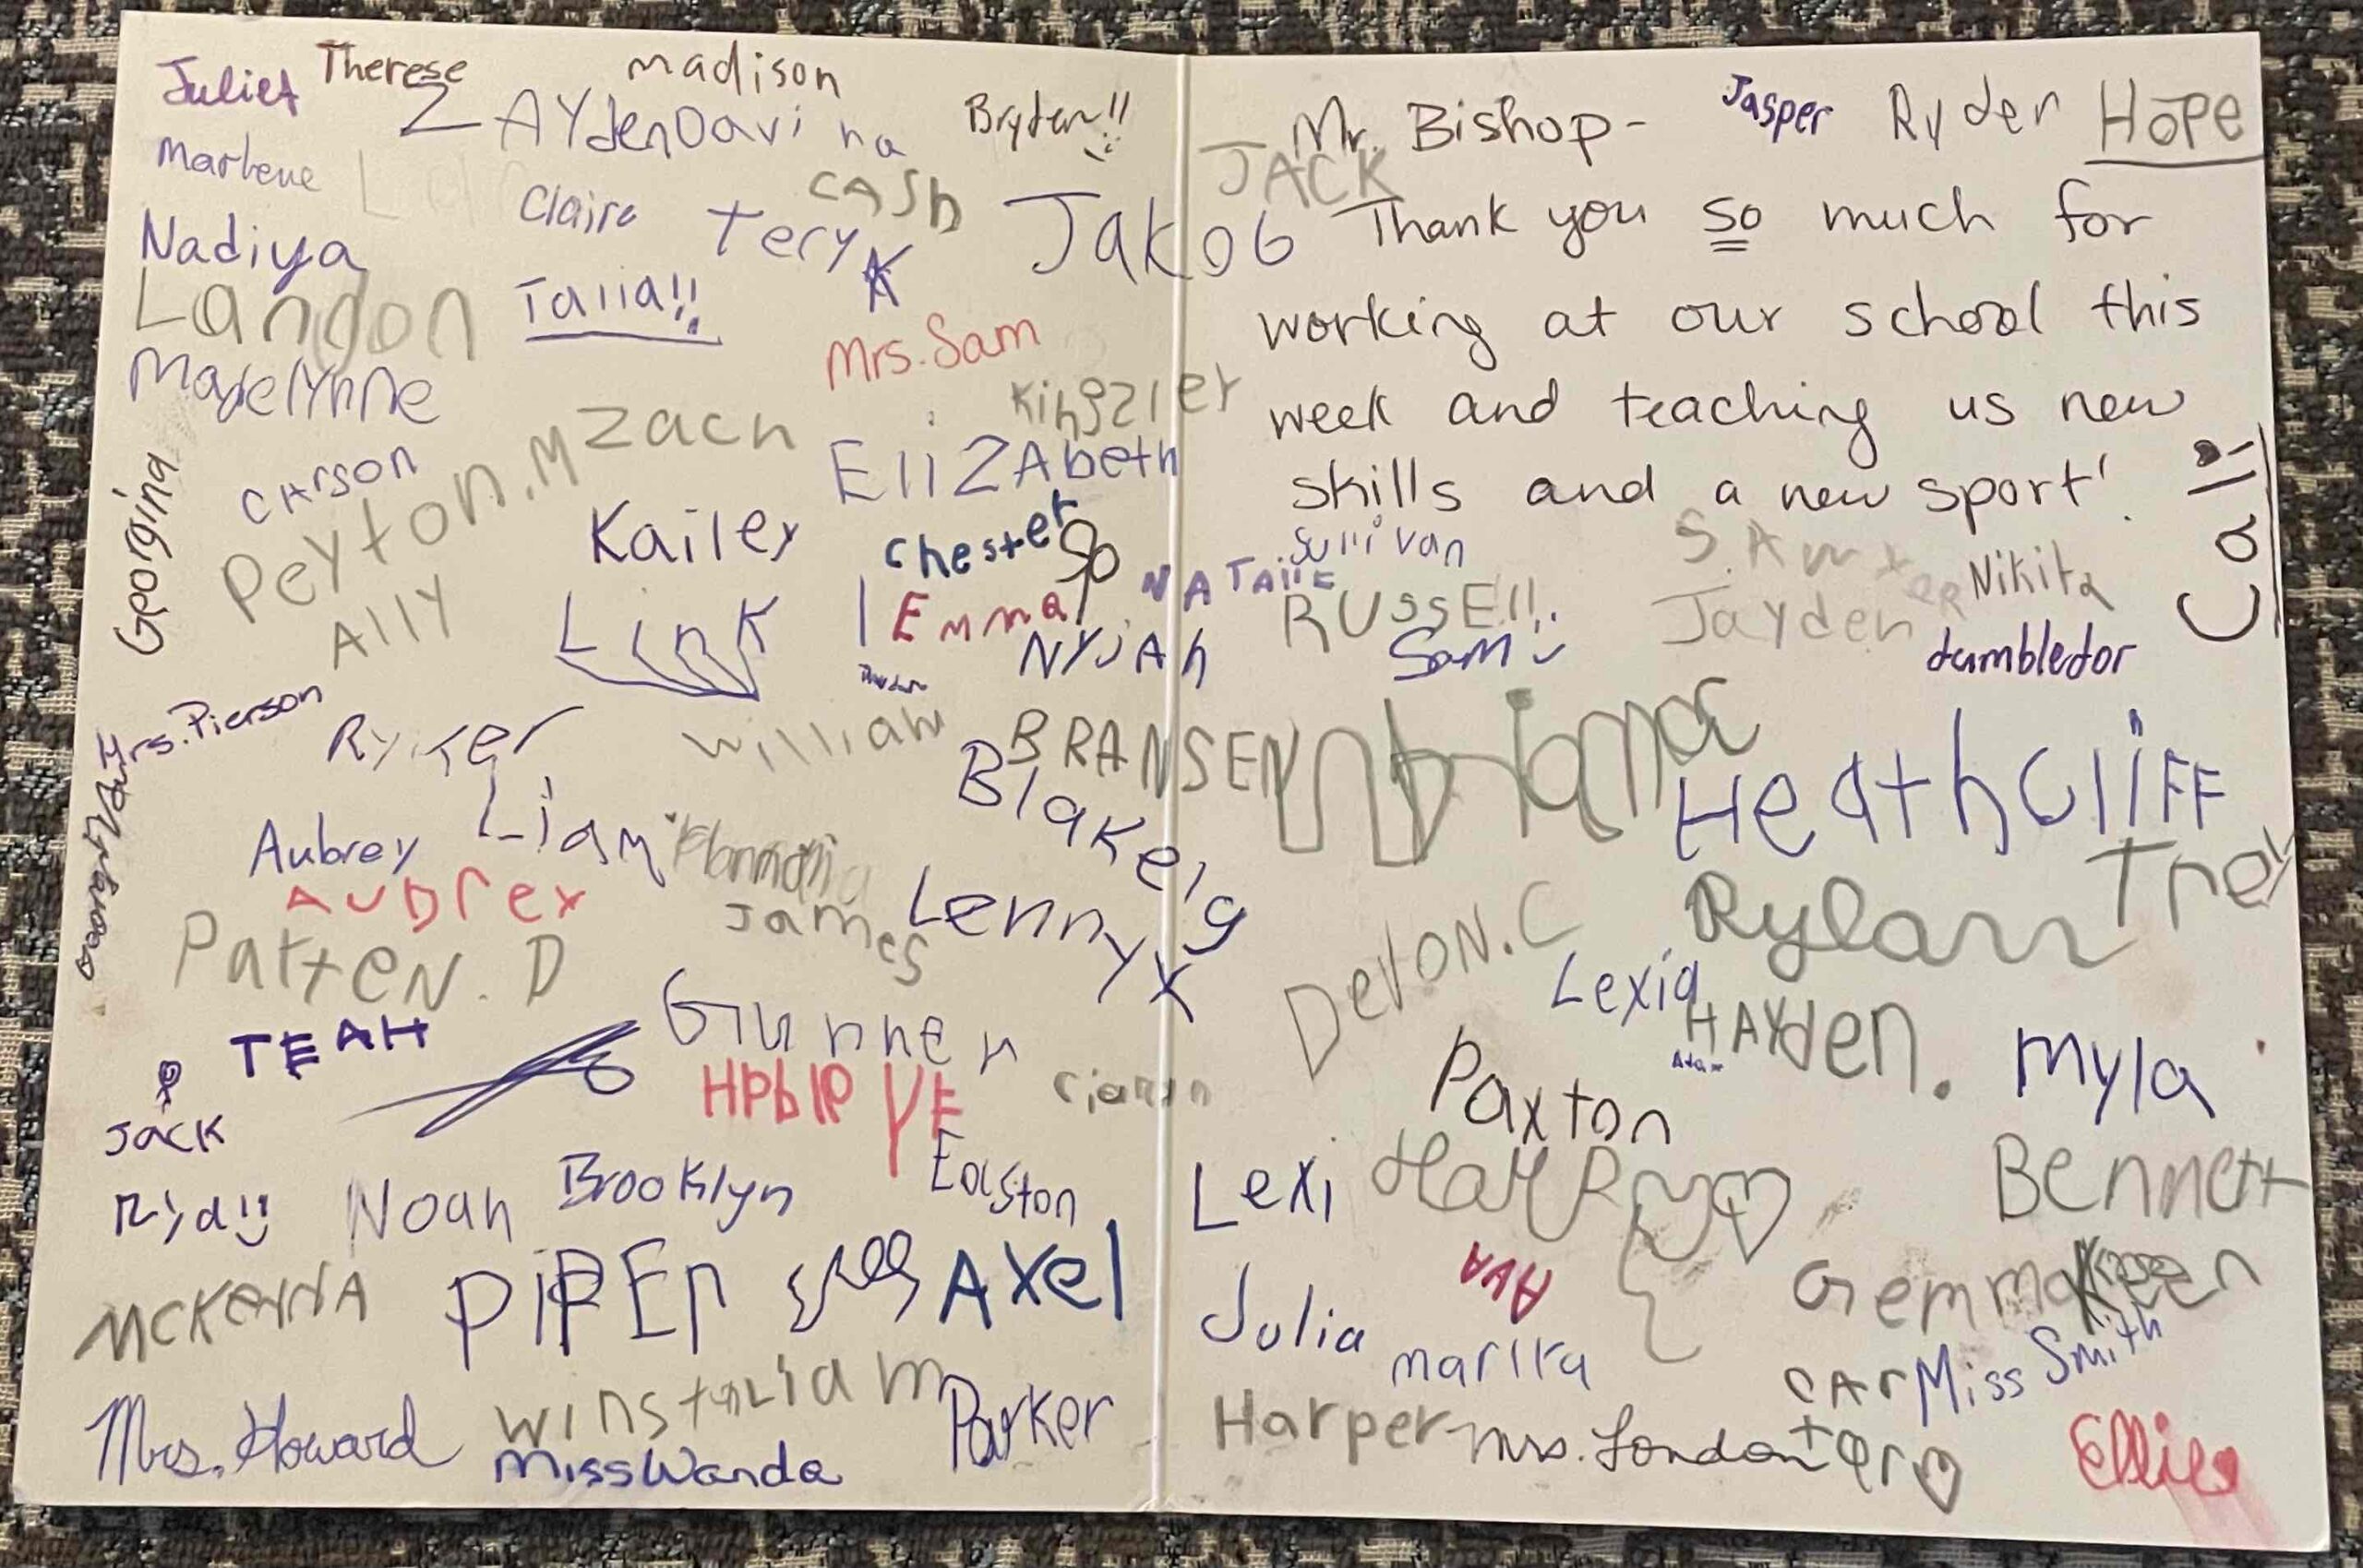 Juliet
Therese
madison
ZAYden
Davina
Bryden!!
Claire
CASh
Tery
K
JakoB
Nadiya
Landon
Talia!!
Mrs. Sam
Madelynne
Zach
Kingzler
Georgina
CArson
Peyton.M
EliZAbeth
Kailey
Chester
Ally
Link
Emma
NyJAh
rs. Pierson
Ryker
William
BRANSEN
Blakely
Aubrey
Liam
AUBrey
James
Lennyx
Patten. D
TEAH
Gunner
Jack
Noah
Brooklyn
Easton
MCKeNNA
PiPEr
AXel
Winston
Liam
Parker
Mrs. Howard
Miss Wanda
Mr. Bishop-
Jasper
Ryder
HOPE
JACK
Thank you so much for
working at our school this
week and teaching us new
skills and a new sport!
Cali
Sullivan
NATAliE
RUssEll
SAwyER
Nikita
Jayden
Sam
dumbledor
Heathcliff
Trey
Rylan
Devon.C
Lexia
HAYden.
Adam
Paxton
Myla
Lexi
HaRRy
Bennett
AvA
Gemma
Keen
Julia
marika
CArter
Miss Smith
Harper
Mrs. London
Ellie